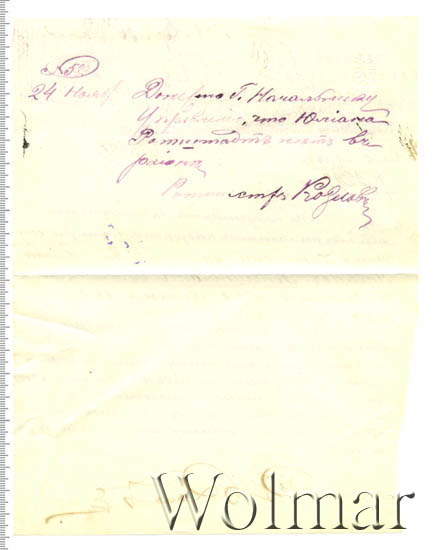 № 50
24 Нояб.
Доношу Г. Начальнику
Управления, что Юліана
Ротштадтъ нѣтъ въ
районѣ
Ротмистръ Козловъ
Wolmar